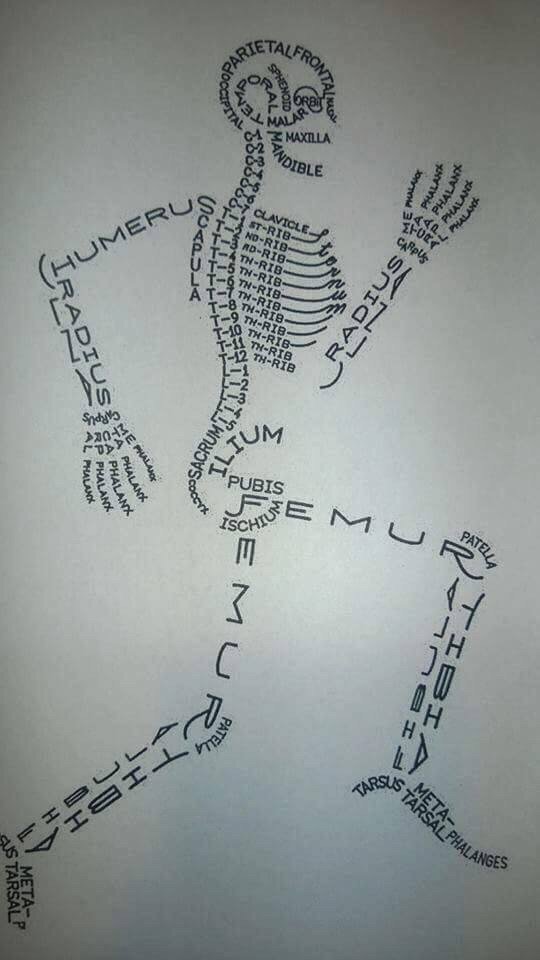 PARIETAL
FRONTAL
NASAL
OCCIPITAL
TEMPORAL
SPHENOID
ORBIT
MALAR
MAXILLA
MANDIBLE
C-1
C-2
C-3
C-4
C-5
C-6
C-7
CLAVICLE
ST-RIB
ND-RIB
RD-RIB
TH-RIB
TH-RIB
TH-RIB
TH-RIB
TH-RIB
TH-RIB
TH-RIB
TH-RIB
TH-RIB
Sternum
T-1
T-2
T-3
T-4
T-5
T-6
T-7
T-8
T-9
T-10
T-11
T-12
L-1
L-2
L-3
L-4
L-5
SCAPULA
HUMERUS
RADIUS
ULNA
CARPUS
META
CARPAL
PHALANX
PHALANX
PHALANX
PHALANX
PHALANX
RADIUS
ULNA
CARPUS
PHALANX
PHALANX
PHALANX
PHALANX
PHALANX
SACRUM
COCCYX
ILIUM
PUBIS
ISCHIUM
FEMUR
PATELLA
TIBIA
FIBULA
TARSUS
META-
TARSAL
PHALANGES
EMUR
PATELLA
TIBIA
FIBULA
SUS
META-
TARSAL
P